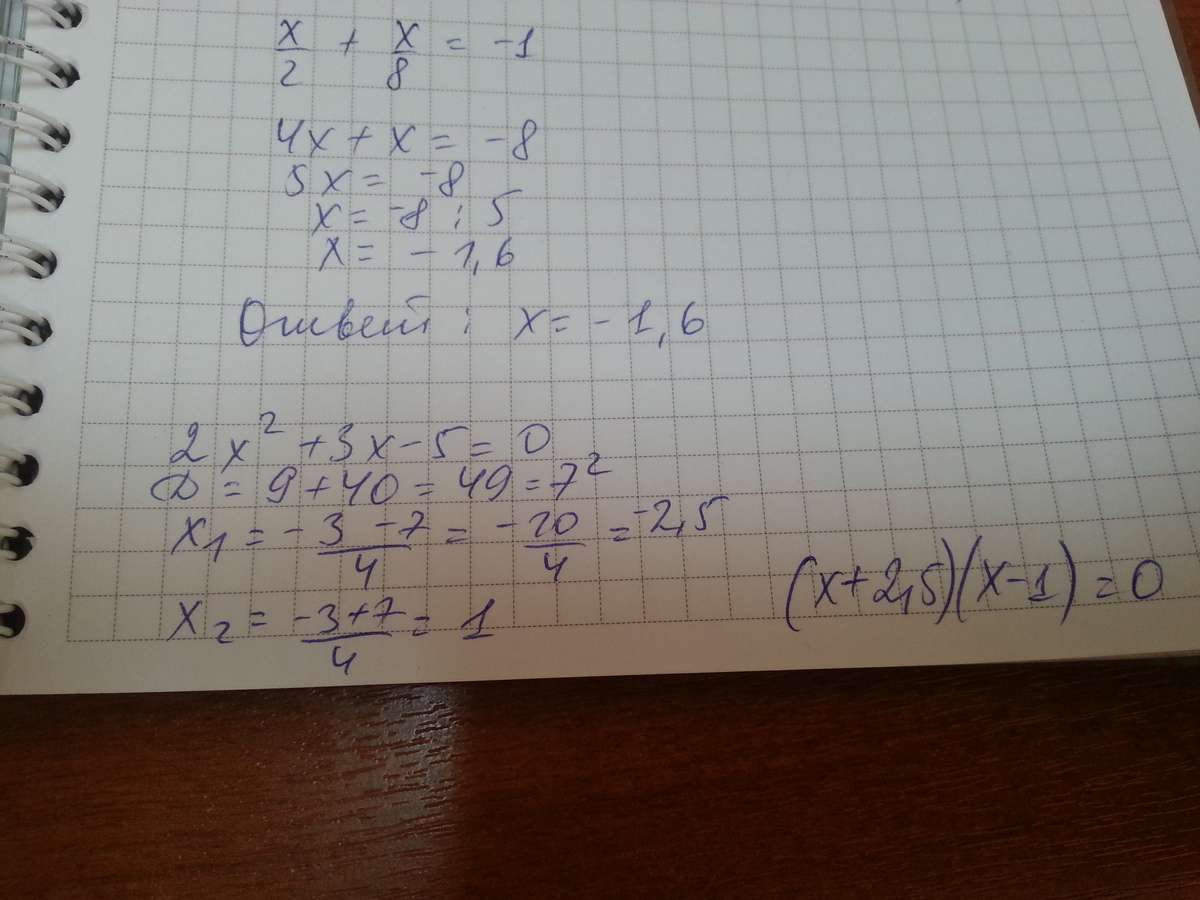 x/2 + x/8 = -1
4x + x = -8
5x = -8
x = -8 : 5
x = -1,6
Ответ: x = -1,6
2x² + 3x - 5 = 0
D = 9 + 40 = 49 = 7²
x₁ = (-3 - 7)/4 = -10/4 = -2,5
(x + 2,5)(x - 1) = 0
x₂ = (-3 + 7)/4 = 1